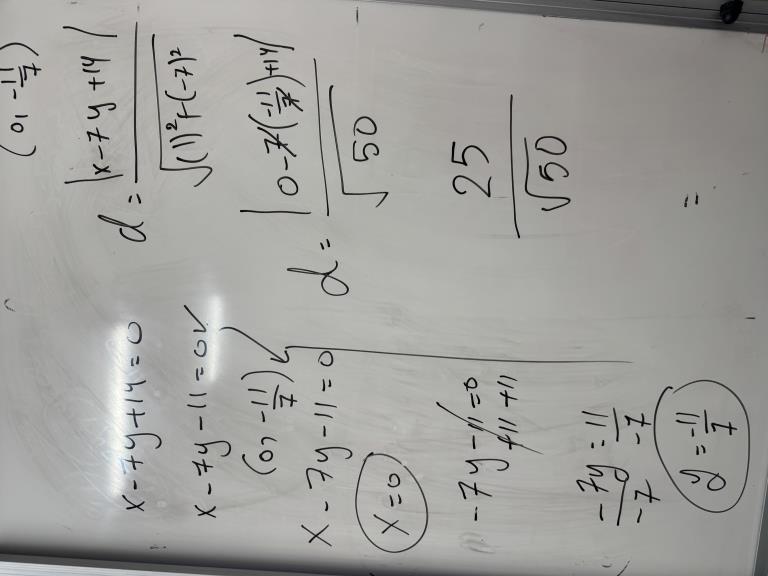 x - 7y + 14 = 0
x - 7y - 11 = 0 ✓
(0, -11/7)
x - 7y - 11 = 0
x = 0
-7y - 11 = 0
+11 +11
-7y/-7 = 11/-7
y = -11/7
(0, -11/7)
d = |x - 7y + 14| / √(1)² + (-7)²
d = |0 - 7(-11/7) + 14| / √50
25/√50
=